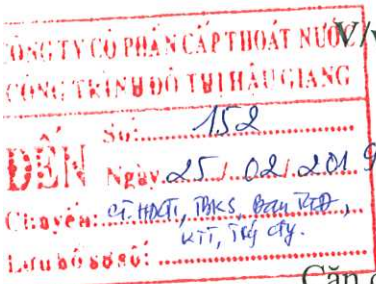 V/v
CÔNG TY CỔ PHẦN CẤP THOÁT NƯỚC
CÔNG TRÌNH ĐÔ THỊ HẬU GIANG
ĐẾN
Số: 152
Ngày 25 / 02 / 2019
Chuyển: CT. HĐQT, TBKS, Ban
KTT,
Lưu hồ sơ số:
Căn c